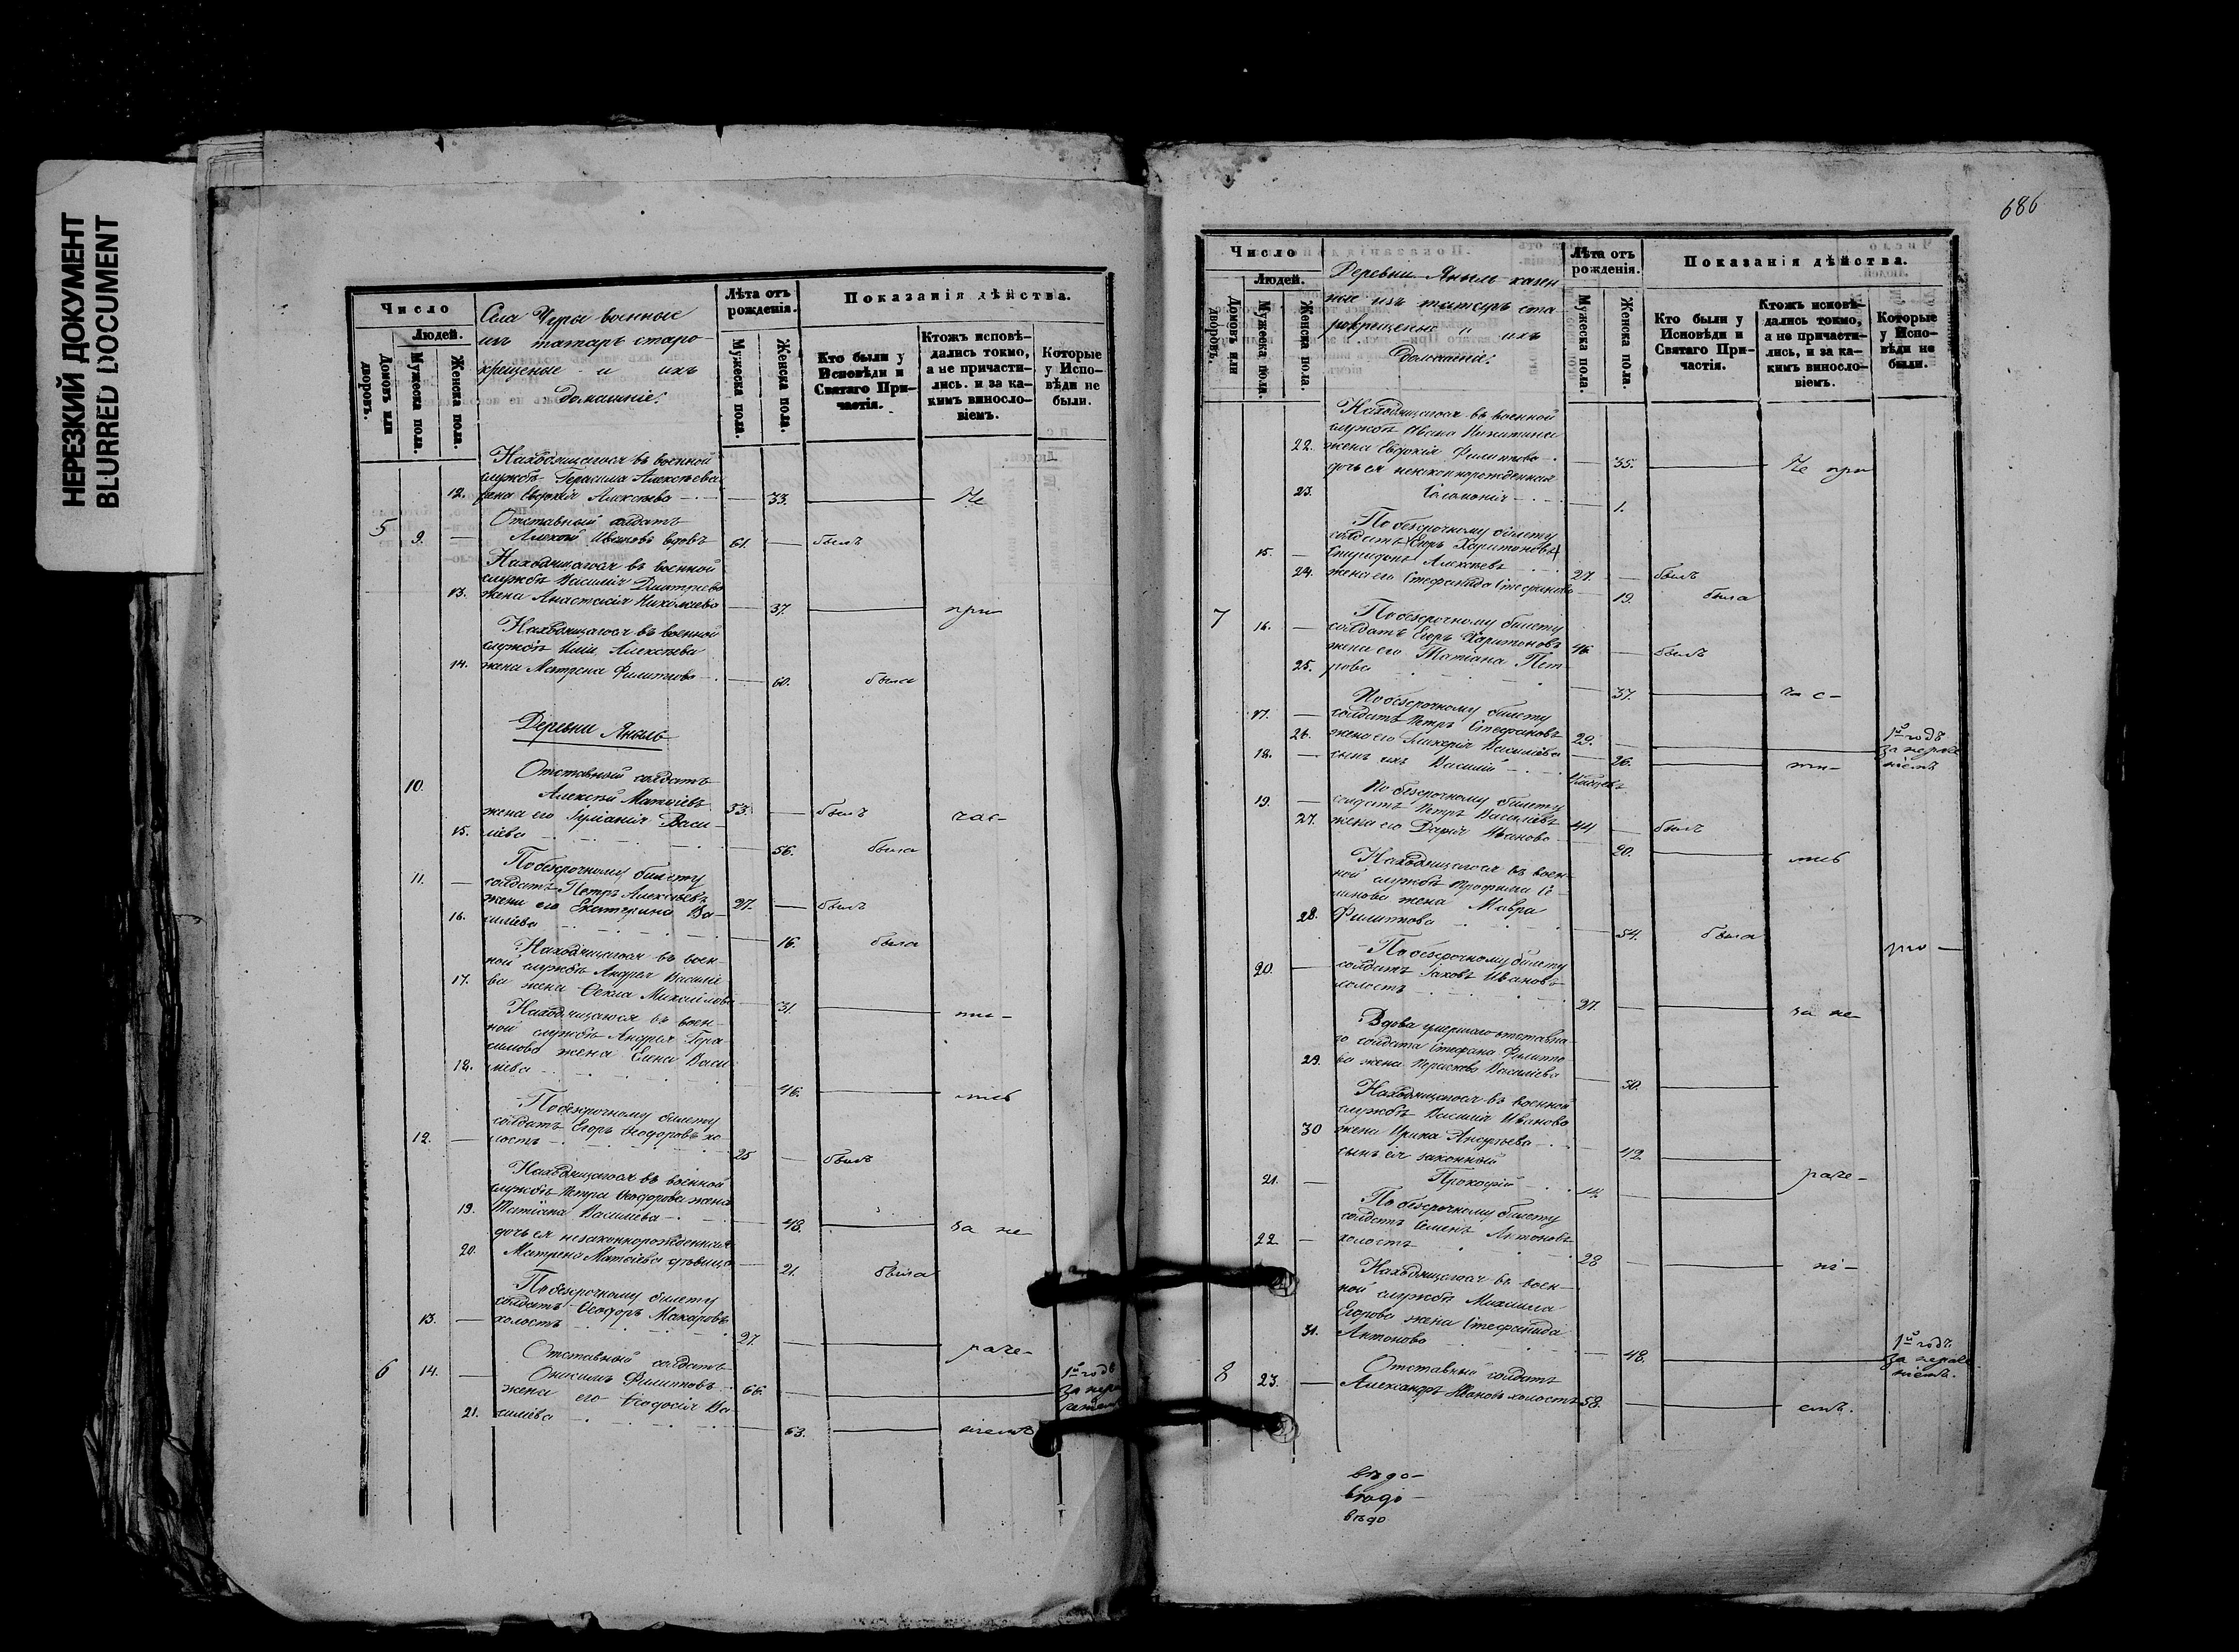 НЕРЕЗКИЙ ДОКУМЕНТ
BLURRED DOCUMENT
Число
Людей.
Домовъ или дворовъ.
Мужеска пола.
Женска пола.
Села Чуры военные
изъ татаръ старо-
крещеные и ихъ
домашніе:
Лѣта отъ рожденія.
Мужеска пола.
Женска пола.
Показанія дѣйства.
Кто были у Исповѣди и Святаго Причастія.
Ктожъ исповѣдались токмо, а не причастились, и за какимъ винословіемъ.
Которые у Исповѣди не были.
Находящагося въ военной
службѣ Герасима Алексѣева
12. жена Евдокія Алексѣева 33. Не
Отставный солдатъ
5 9. Алексѣй Ивановъ вдовъ 61. былъ
Находящагося въ военной
службѣ Василія Дмитріева
13. жена Анастасія Николаева 37. при
Находящагося въ военной
службѣ Иліи Алексѣева
14. жена Матрена Филиппова 60. была
Деревни Яныль
Отставный солдатъ
10. Алексѣй Матвіевъ 53. былъ час-
жена его Іуліанія Васи-
15. ліева 56. была
По безсрочному билету
11. солдатъ Петръ Алексѣевъ 27. былъ
жена его Екатерина Ва-
16. силіева 16. была
Находящагося въ воен-
ной службѣ Андрея Василіе
17. ва жена Ѳекла Михаилова 31. ти-
Находящагося въ воен-
ной службѣ Андрея Гера-
симова жена Елена Васи-
18. ліева 46. лись
По безсрочному билету
12. солдатъ Егоръ Ѳеодоровъ хо-
лостъ 25 былъ
Находящагося въ военной
службѣ Петра Ѳеодорова жена
19. Татіана Василіева 48. за не
дочь ея незаконнорожденная
20. Матрена Матвіева дѣвица 21. была
По безсрочному билету
солдатъ Ѳеодоръ Макаровъ
13. холостъ 27. раче-
Отставный солдатъ
6 14. Онисимъ Филипповъ 66. 1й годъ за нераченіемъ
жена его Ѳеодосія Ва-
21. силіева 63. ніемъ
686
Число
Людей.
Домовъ или дворовъ.
Мужеска пола.
Женска пола.
Деревни Яныль казен
ные изъ татаръ ста
рокрещеные и ихъ
домашніе:
Лѣта отъ рожденія.
Мужеска пола.
Женска пола.
Показанія дѣйства.
Кто были у Исповѣди и Святаго Причастія.
Ктожъ исповѣдались токмо, а не причастились, и за какимъ винословіемъ.
Которые у Исповѣди не были.
Находящагося въ военной
службѣ Ивана Никитина
22. жена Евдокія Филиппова 35. Не при
дочь ея незаконнорожденная
23. Соломонія 1.
По безсрочному билету
солдатъ Егоръ Харитоновъ
15. Спиридонъ Алексѣевъ 27. былъ
24. жена его Стефанида Стефанова 19. была
По безсрочному билету
7 16. солдатъ Егоръ Харитоновъ 46. былъ
жена его Татіана Пет-
25. рова 37. час-
По безсрочному билету
17. солдатъ Петръ Стефановъ 29. 1й годъ за нераченіемъ
26. жена его Гликерія Василіева 26. ти-
18. сынъ ихъ Василій
По безсрочному билету
19. солдатъ Петръ Василіевъ 44 былъ
27. жена его Дарія Иванова 20. лись
Находящагося въ воен-
ной службѣ Трофима
жена Мавра
28. Филиппова 54. была
По безсрочному билету
20. солдатъ Іаковъ Ивановъ
холостъ 27. за не-
Вдова умершаго отставна-
го солдата Стефана Филиппо-
29. ва жена Параскева Василіева 50.
Находящагося въ военной
службѣ Василія Иванова
30 жена Ирина 42
сынъ ея законный
21. Прокофій 14. раче-
По безсрочному билету
солдатъ Семенъ Антоновъ
22 холостъ 28 ні-
Находящагося въ воен-
ной службѣ Михаила
Егорова жена Стефанида
31. Антонова 48. 1й годъ за нераченіемъ.
Отставный солдатъ
8 23. Александръ Ивановъ холостъ 58. емъ.